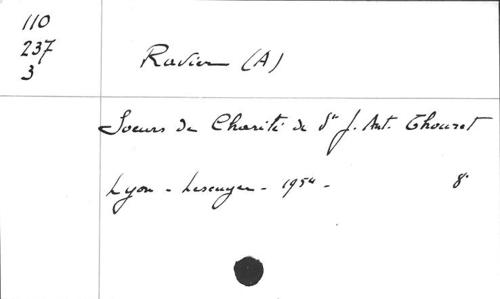 110
237
3
Ravier (A)
Soeurs de Charité de Ste J. Ant. Thouret
Lyon - Lescuyer - 1954 - 8°